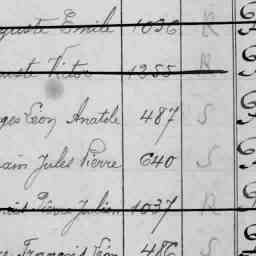 guste Emile 1036 R
uste Victor 1255 R
ges Léon Anatole 487 S
ain Jules Pierre 640 S
Pierre Julien 1037 R
François Léon 486 S